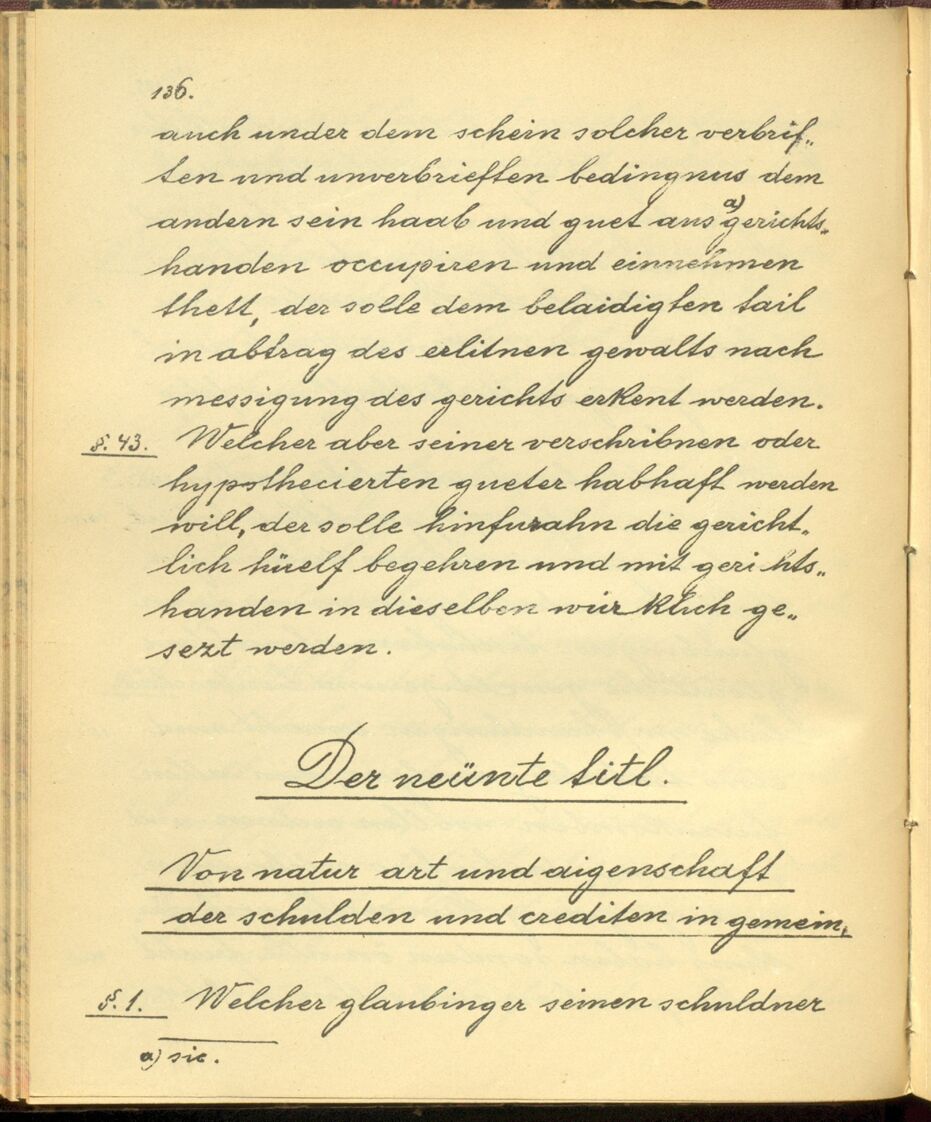 136.
auch under dem schein solcher verbrif„
ten und unverbrieften bedingnus dem
andern sein haab und guet aus a) gerichts„
handen occupiren und einnehmen
thett, der solle dem belaidigten tail
in abtrag des erlitnen gewalts nach
messigung des gerichts erkent werden.
§. 43. Welcher aber seiner verschribnen oder
hypothecierten gueter habhaft werden
will, der solle hinfurahn die gericht„
lich hüelf begehren und mit gerichts„
handen in dieselben würklich ge„
sezt werden.
Der neünte titl.
Von natur art und aigenschaft
der schulden und crediten in gemein.
§. 1. Welcher glaubinger seinen schuldner
a) sic.